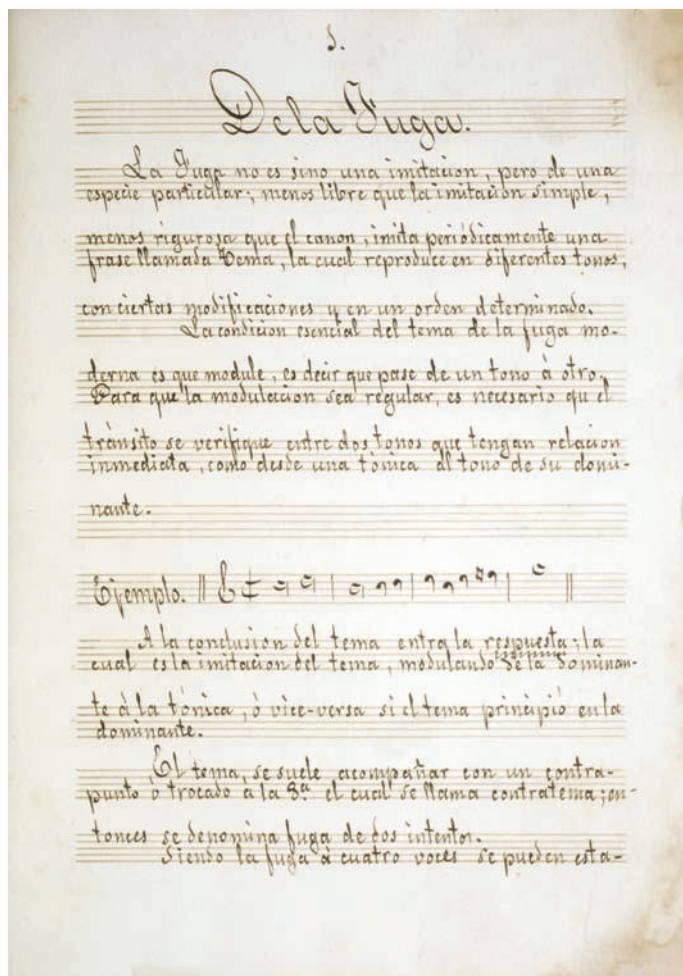 1.
De la Fuga.
La Fuga no es sino una imitacion, pero de una
especie particular; menos libre que la imitacion simple,
menos rigurosa que el canon, imita periódicamente una
frase llamada tema, la cual reproduce en diferentes tonos,
con ciertas modificaciones y en un orden determinado.
La condicion esencial del tema de la fuga mo-
derna es que module, es decir que pase de un tono à otro.
Para que la modulacion sea regular, es necesario qu el
trànsito se verifique entre dos tonos que tengan relacion
inmediata, como desde una tònica al tono de su domi-
nante.
Ejemplo.
A la conclusion del tema entra la respuesta; la
cual es la imitacion del tema, modulando de la dominan-
te à la tònica, ò vice-versa si el tema principiò en la
dominante.
El tema, se suele acompañar con un contra-
punto ò trocado à la 8ª el cual se llama contratema; en-
tonces se denomina fuga de dos intentos.
Siendo la fuga à cuatro voces se pueden esta-